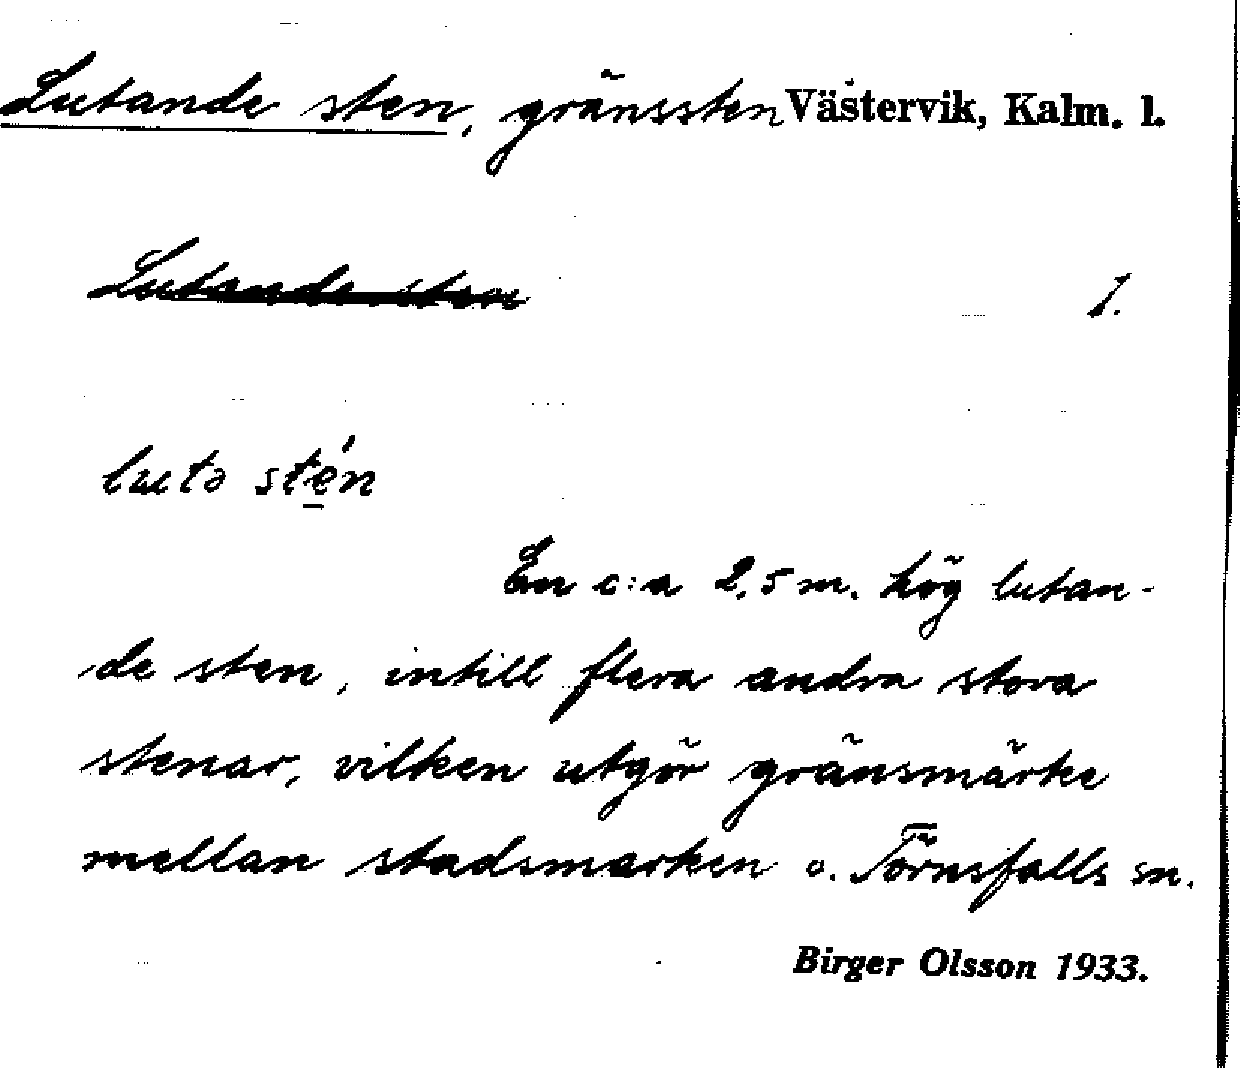 Lutande sten, gränssten Västervik, Kalm. l.
Lutande sten 1.
lutə stén
En c:a 2,5 m. hög lutan-
de sten, intill flera andra stora
stenar, vilken utgör gränsmärke
mellan stadsmarken o. Törnsfalls sn.
Birger Olsson 1933.